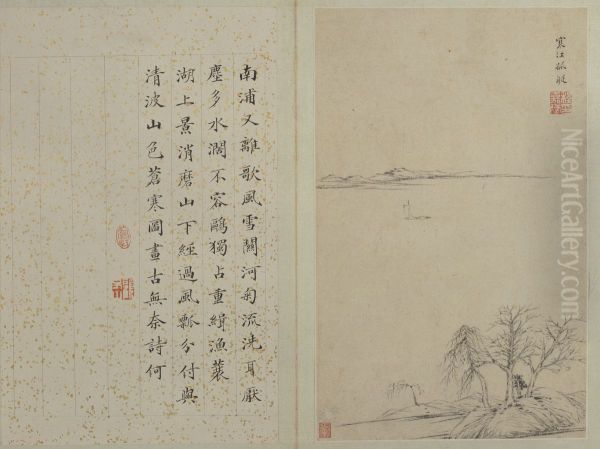 寒江孤艇
南浦又離歌風雪關河菊流洗耳厭
塵多水濶不容鷗獨占重緝漁蓑
湖上景消磨山下經過風瓢分付與
清波山色蒼寒圖畫古無奈詩何
NiceArtGallery.com